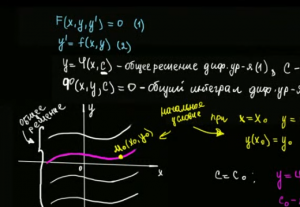 F(x,y,y')=0 (1)
y'=f(x,y) (2)
y=φ(x,c) - общее решение диф.ур-я (1), c -
Φ(x,y,c)=0 - общий интеграл диф.ур-я
общее решение
y
начальное условие
при x=x₀ y=
M₀(x₀,y₀)
y(x₀)=y₀
0 x
c=c₀: y=φ
c₀-